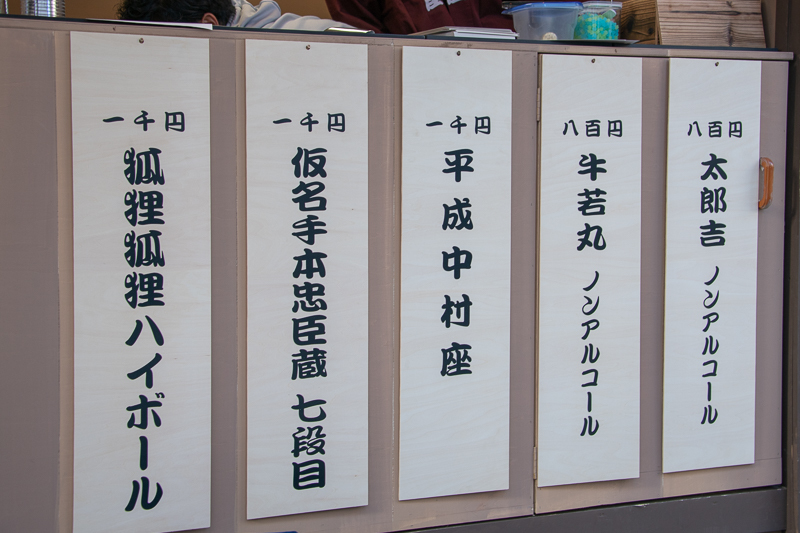 八百円
太郎吉 ノンアルコール
八百円
牛若丸 ノンアルコール
一千円
平成中村座
一千円
仮名手本忠臣蔵 七段目
一千円
狐狸狐狸ハイボール